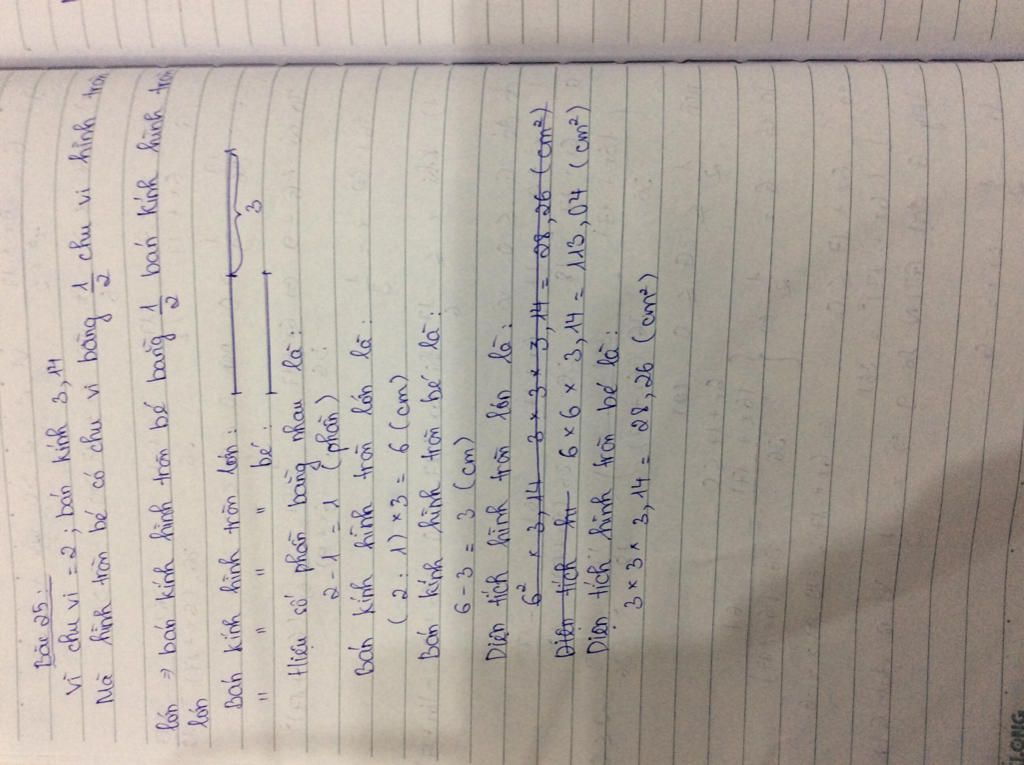 Bài 25:
Vì chu vi = 2 ; bán kính 3,14
Mà hình tròn bé có chu vi bằng 1/2 chu vi hình tròn
lớn => bán kính hình tròn bé bằng 1/2 bán kính hình tròn
lớn
Bán kính hình tròn lớn :
" " " " bé :
3
Hiệu số phần bằng nhau là :
2 - 1 = 1 (phần)
Bán kính hình tròn lớn là :
( 2 : 1) × 3 = 6 (cm)
Bán kính hình tròn bé là :
6 - 3 = 3 (cm)
Diện tích hình tròn lớn là :
6² × 3,14 3 × 3 × 3,14 = 28,26 (cm²)
Diện tích hì 6 × 6 × 3,14 = 113,04 (cm²)
Diện tích hình tròn bé là :
3 × 3 × 3,14 = 28,26 (cm²)
LONG